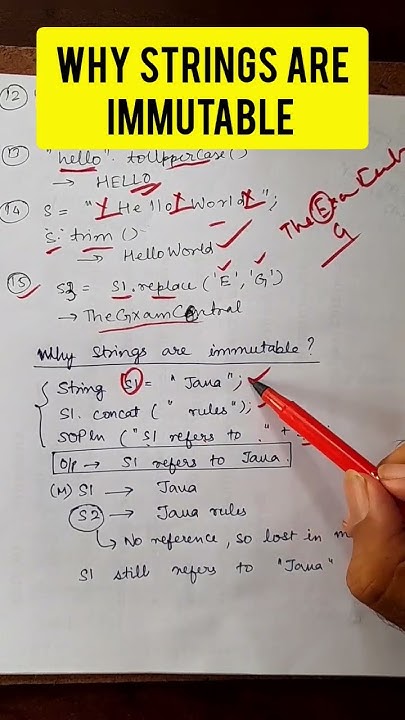 WHY STRINGS ARE
IMMUTABLE
12
13 "hello". toUpperCase()
→ HELLO
14 S = " Hello World ";
S. trim ()
→ HelloWorld
The Exam
G
15 S2 = S1.replace ('E', 'G')
→ TheGxamCentral
Why strings are immutable?
String S1 = "Java";
S1. concat (" rules");
SOPln ("S1 refers to ." +
O/p → S1 refers to Java.
(M) S1 → Java
S2 → Java rules
→ No reference, so lost in
S1 still refers to "Java"